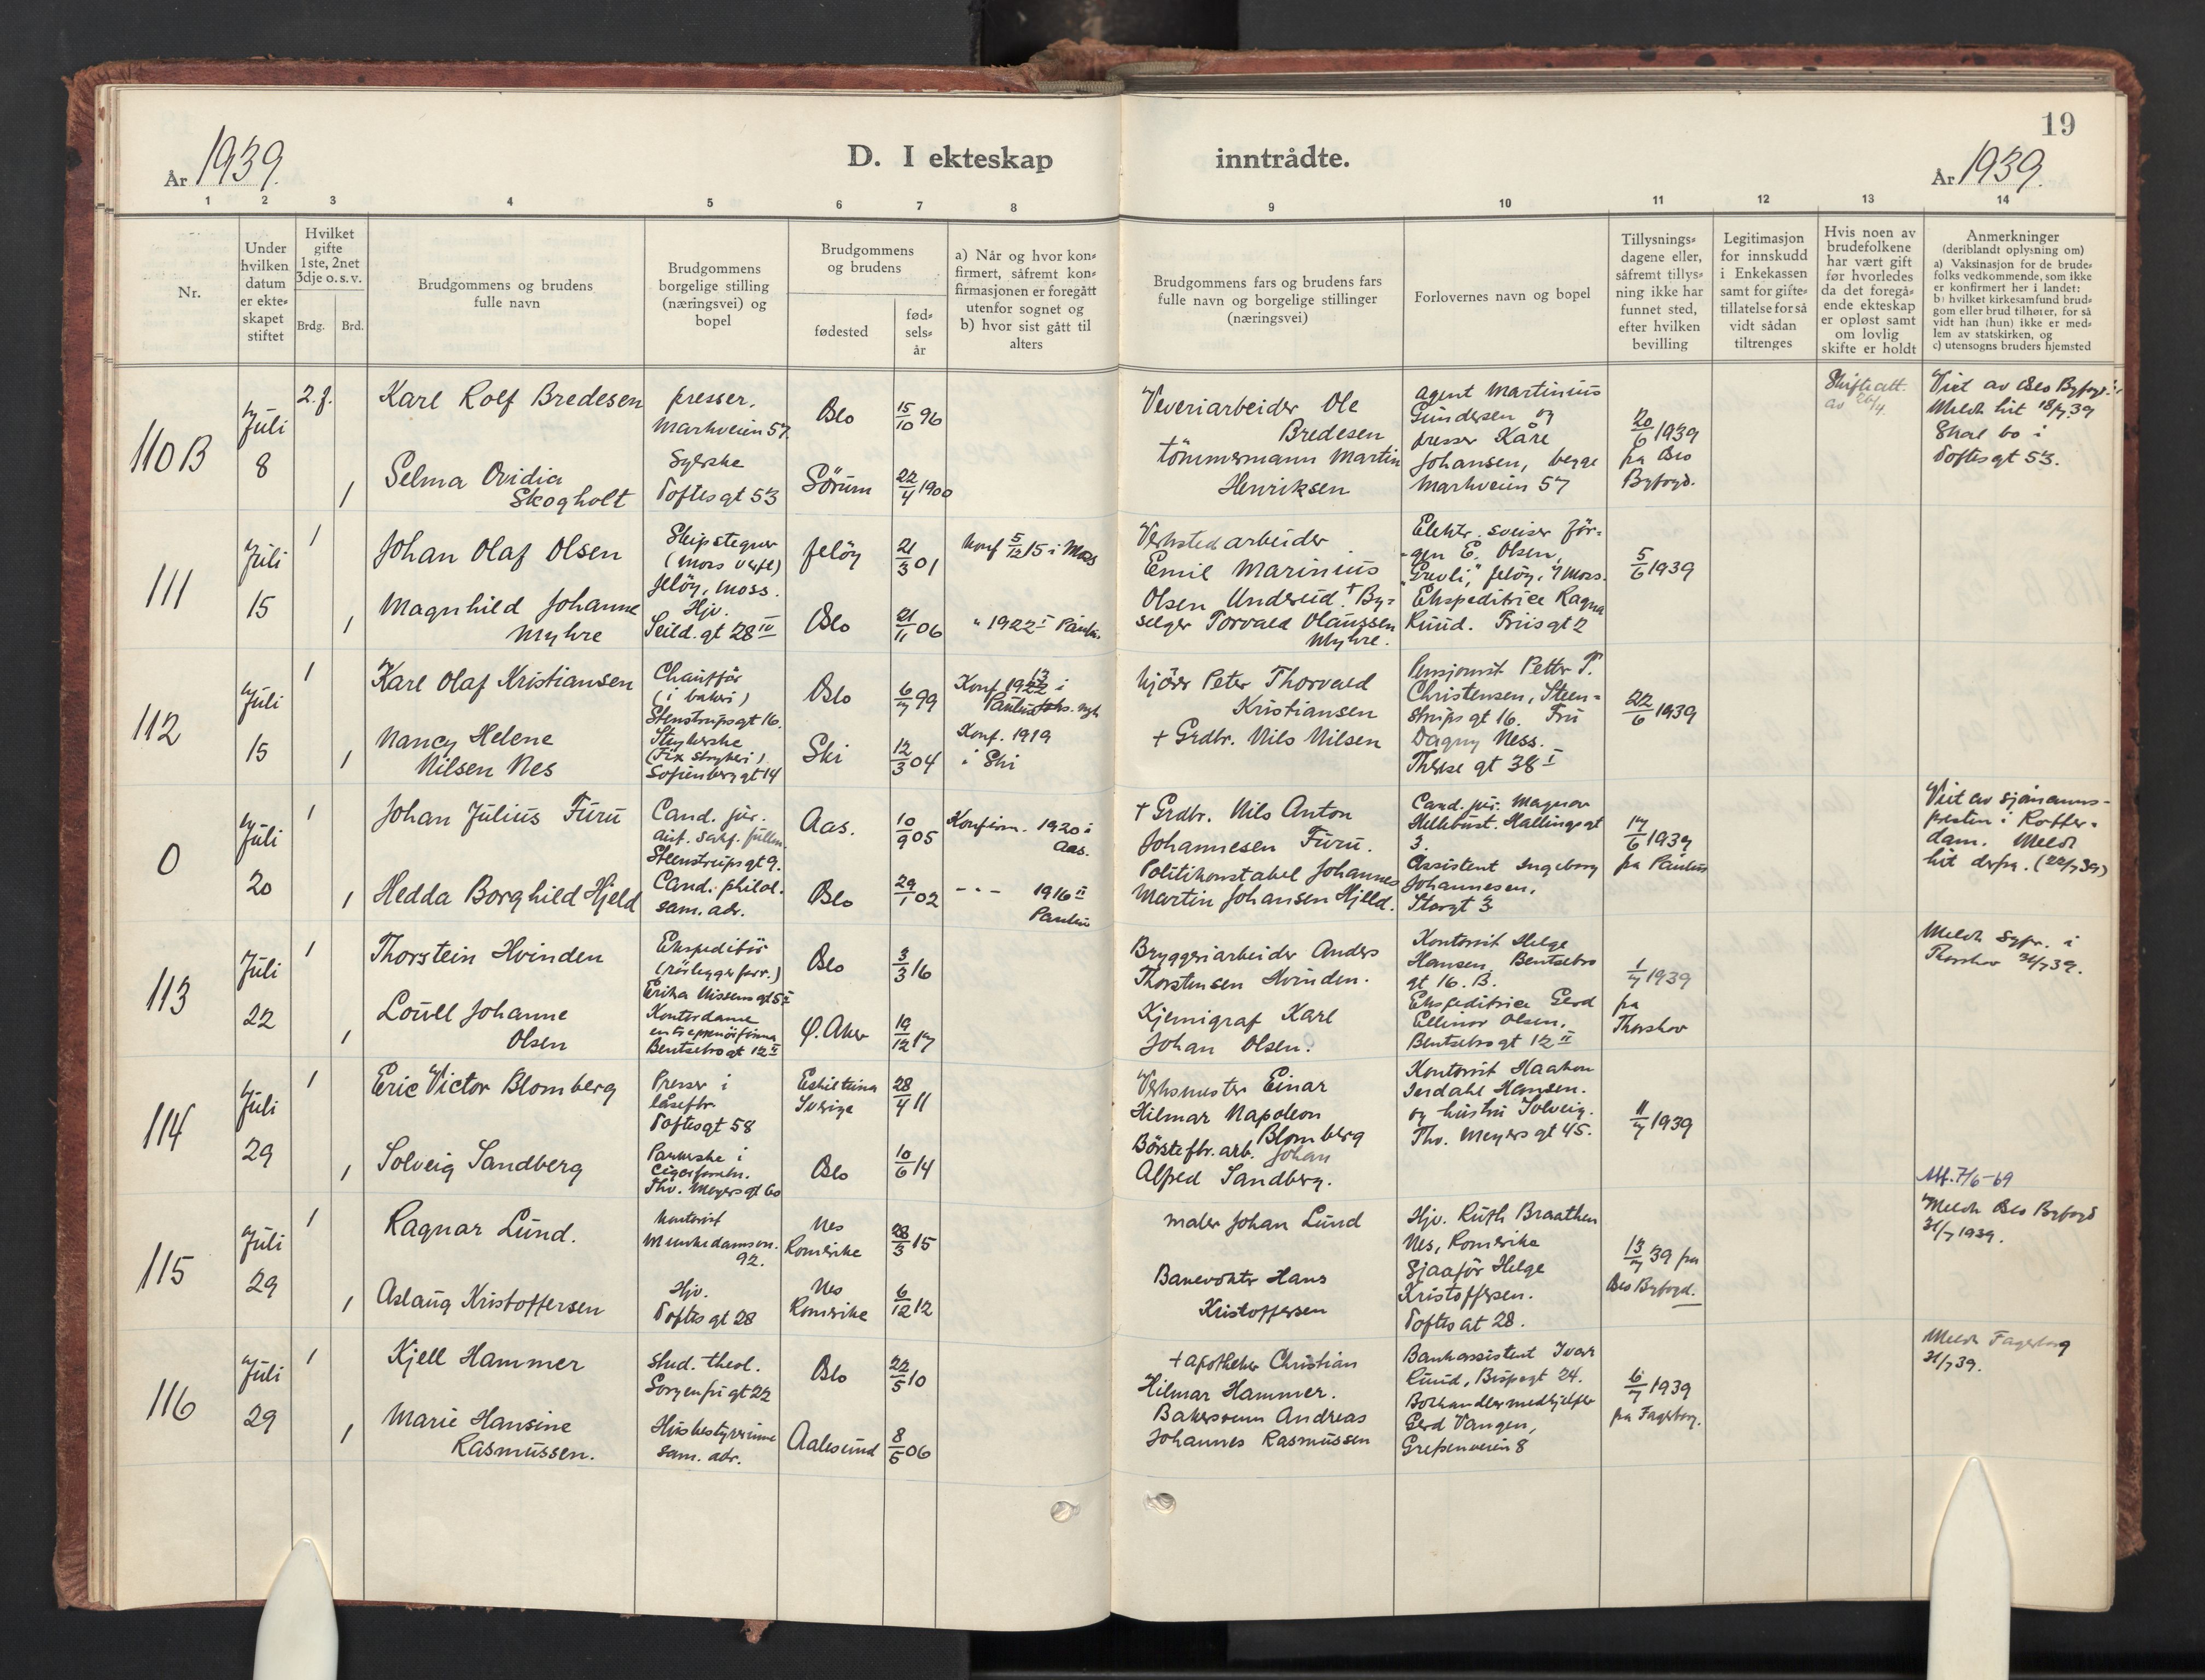 19
År 1939.
D. I ekteskap inntrådte.
År 1939.
1 2 3 4 5 6 7 8 9 10 11 12 13 14
Nr.
Under
hvilken
datum
er ekte-
skapet
stiftet
Hvilket
gifte
1ste, 2net
3dje o. s. v.
Brdg. Brd.
Brudgommens og brudens
fulle navn
Brudgommens
borgelige stilling
(næringsvei) og
bopel
Brudgommens
og brudens
fødested
fød-
sels-
år
a) Når og hvor kon-
firmert, såfremt kon-
firmasjonen er foregått
utenfor sognet og
b) hvor sist gått til
alters
Brudgommens fars og brudens fars
fulle navn og borgelige stillinger
(næringsvei)
Forlovernes navn og bopel
Tillysnings-
dagene eller,
såfremt tillys-
ning ikke har
funnet sted,
efter hvilken
bevilling
Legitimasjon
for innskudd
i Enkekassen
samt for gifte-
tillatelse for så
vidt sådan
tiltrenges
Hvis noen av
brudefolkene
har vært gift
før hvorledes
da det foregå-
ende ekteskap
er opløst samt
om lovlig
skifte er holdt
Anmerkninger
(deriblandt oplysning om)
a) Vaksinasjon for de brude-
folks vedkommende, som ikke
er konfirmert her i landet:
b) hvilket kirkesamfund brud-
gom eller brud tilhører, for så
vidt han (hun) ikke er med-
lem av statskirken, og
c) utensogns bruders hjemsted
110B
Juli
8
2. f.
1
Karl Rolf Bredesen
Selma Ovidia
Skogholt
presser.
Markveien 57.
Syerske
Toftesgt 53
Oslo
Sörum
15/10 96
22/4 1900
Veveriarbeider Ole
Bredesen
+ tömmermann Martin
Henriksen
agent Martinius
Gundersen og
presser Kåre
Johansen, begge
Markveien 57
20/6 1939
fra Oslo
Byfogd.
Skifteatt.
av 26/4.
Viet av Oslo Byfogd.
Meldt hit 18/7.39
Skal bo i
Toftesgt 53.
111
Juli
15
1
1
Johan Olaf Olsen
Magnhild Johanne
Myhre
Skipstegner
(Moss verft)
Jelöy, Moss.
Hjv.
Seild. gt 28 IV
Jelöy
Oslo
21/3 01
21/11 06
Konf 5/12 15 i Moss
" 1922 I Paulus
Verkstedarbeider
Emil Marinius
Olsen Underud. + By-
selger Torvald Olaussen
Myhre.
Elektr. sveiser Jör-
gen E. Olsen,
"Grevli," Jelöy, i Moss.
Ekspeditrice Ragna
Ruud. Friisgt 2
5/6 1939
112
Juli
15
1
1
Karl Olaf Kristiansen
Nancy Helene
Nilsen Nes
Chaufför
(i bakeri)
Stenstrupsgt 16.
Strykerske
(Fix Strykeri)
Sofienberggt 14
Oslo
Ski
6/7 99
12/3 04
Konf. 1922 13 i
Paulus
Konf. 1919
i Ski
Kjörer Peter Thorvald
Kristiansen
+ Grdbr. Nils Nilsen
Pensjonist Petter T.
Christensen, Steen-
strups gt 16. Fru
Dagny Ness.
Therese gt 38 I
22/6 1939
0
Juli
20
1
1
Johan Julius Furu
Hedda Borghild Hjeld
Cand. jur.
aut. sakf. fullm.
Steenstrupsgt 9.
Cand. philol.
sam. adr.
Aas.
Oslo
10/9 05
29/1 02
Konfirm. 1920 i
Aas.
- " - 1916 II
Paulus
+ Grdbr. Nils Anton
Johannesen Furu.
Politikonstabel Johannes
Martin Johansen Hjeld.
Cand. jur. Magnar
Hellebust. Hallingsgt
3.
Assistent Ingeborg
Johannesen.
Storgt 3
17/6 1939
fra Paulus
Viet av sjömanns-
presten i Rotter-
dam. Meldt
hit derfra. (22/7 39)
113
Juli
22
1
1
Thorstein Hvinden
Louell Johanne
Olsen
Ekspeditör
(rörleggerforr.)
Erika Nissens gt 5 I
Kontordame
entreprenörfirma
Bentsebrogt 12 II
Oslo
Ö. Aker
3/3 16
19/12 17
Bryggeriarbeider Anders
Thorstensen Hvinden.
Kjemigraf Karl
Johan Olsen.
Kontorist Helge
Hansen, Bentsebro
gt 16. B.
Ekspeditrice Gerd
Ellinor Olsen.
Bentsebrogt 12 II
1/7 1939
fra
Thorshov
Meldt Sgpr. i
Thorshov 31/7 39.
114
Juli
29
1
1
Eric Victor Blomberg
Solveig Sandberg
Presser i
låsefbr.
Toftesgt 58
Pakkerske i
Cigarforretn.
Thv. Meyersgt 60
Eskilstuna
Sverige
Oslo
28/4 11
10/6 14
Verksmester Einar
Hilmar Napoleon
Blomberg
Börstefbr. arb. Johan
Alfred Sandberg.
Kontorist Haakon
Jerdahl Hansen.
og hustru Solveig.
Thv. Meyersgt 45.
11/7 1939
115
Juli
29
1
1
Ragnar Lund.
Aslaug Kristoffersen
Kontorist
Munkedamsvn.
92.
Hjv.
Toftes gt 28
Nes
Romerike
Nes
Romerike
28/3 15
6/12 12
Maler Johan Lund
Banevokter Hans
Kristoffersen
Hjv. Ruth Braathen
Nes, Romerike
Sjaaför Helge
Kristoffersen.
Toftes gt 28.
13/7 39 fra
Oslo Byfogd.
Att. 7/6-69
Meldt Oslo Byfogd
31/7 1939.
116
Juli
29
1
1
Kjell Hammer
Marie Hansine
Rasmussen.
stud. theol.
Sorgenfrigt 22
Husbestyrerinne
sam. adr.
Oslo
Aalesund
22/5 10
8/5 06
+ apotheker Christian
Hilmar Hammer.
Bakersvenn Andreas
Johannes Rasmussen
Bankassistent Ivar
Ruud, Bispegt 24.
Bokhandlermedhjelper
Gerd Vangen,
Grefsenveien 8
6/7 1939
fra Fagerborg.
Meldt Fagerborg
31/7 39.